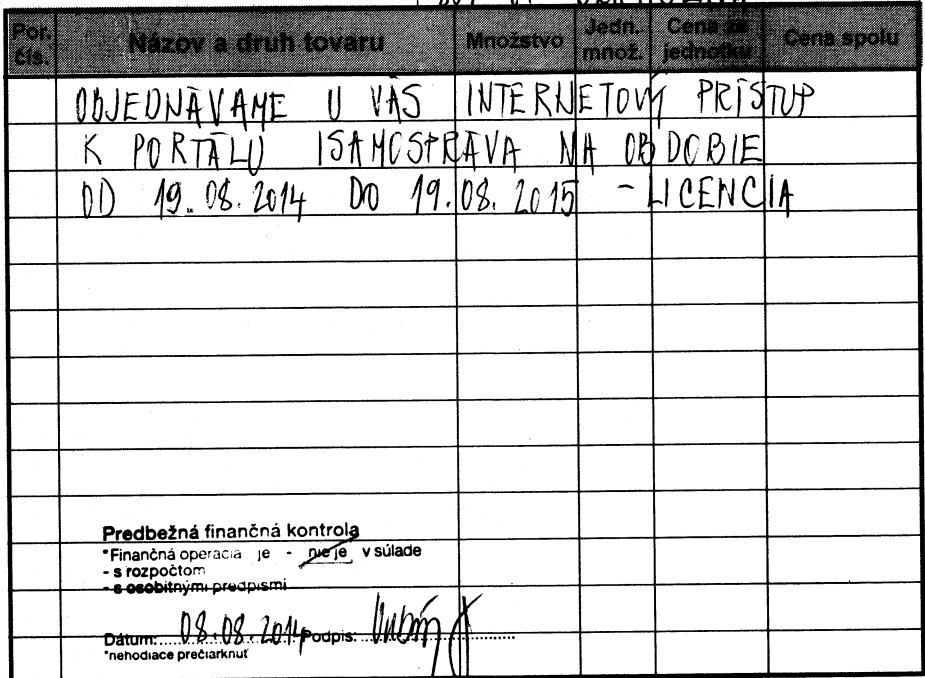 Por. čís. Názov a druh tovaru Množstvo Jedn. množ. Cena za jednotku Cena spolu
OBJEDNÁVAME U VÁS INTERNETOVÝ PRÍSTUP
K PORTÁLU ISAMOSPRÁVA NA OBDOBIE
OD 19.08.2014 DO 19.08.2015 - LICENCIA
Predbežná finančná kontrola
*Finančná operacia je - nie je v súlade
- s rozpočtom
- s osobitnými predpismi
Dátum: 08.08.2014 Podpis:
*nehodiace prečiarknuť